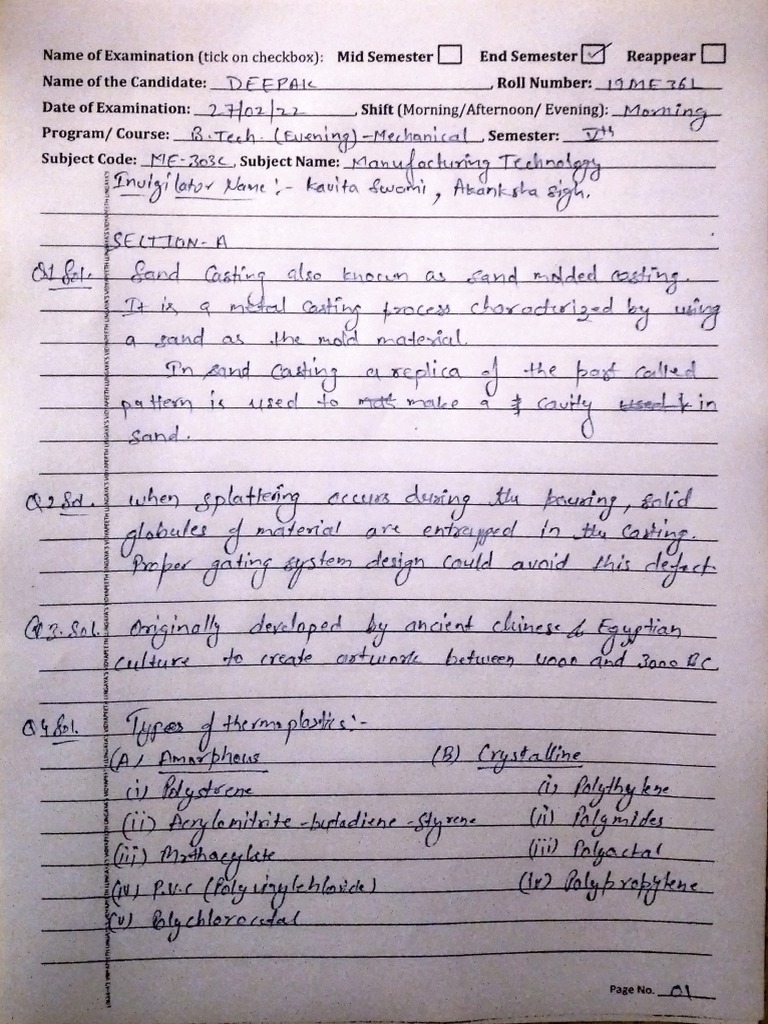 Name of Examination (tick on checkbox): Mid Semester End Semester ✓ Reappear
Name of the Candidate: DEEPAK, Roll Number: 19ME36L
Date of Examination: 27/02/22, Shift (Morning/Afternoon/ Evening): Morning
Program/ Course: B.Tech. (Evening)-Mechanical, Semester: Vth
Subject Code: ME-303C, Subject Name: Manufacturing Technology
Invigilator Name:- Kavita Swami, Akanksha Sigh.
SECTION-A
Q1 Sol. Sand Casting also known as sand molded casting.
It is a metal casting process characterized by using
a sand as the mold material.
In sand casting a replica of the part called
pattern is used to make a cavity in
sand.
Q2 Sol. when splattering occurs during the pouring, solid
globules of material are entrapped in the casting.
Proper gating system design could avoid this defect.
Q3. Sol. Originally developed by ancient chinese & Egyptian
culture to create artwork between 4000 and 3000 BC
Q4 Sol. Types of thermoplastics:-
(A) Amorphous (B) Crystalline
(i) Polystrene (i) Polythylene
(ii) Acrylomitrite-butadiene-Styrene (ii) Polymides
(iii) Mathacylate (iii) Polyactal
(iv) P.V.C (Polyvigylchloride) (iv) Polypropylene
(v) Polychloroctal
Page No. 01